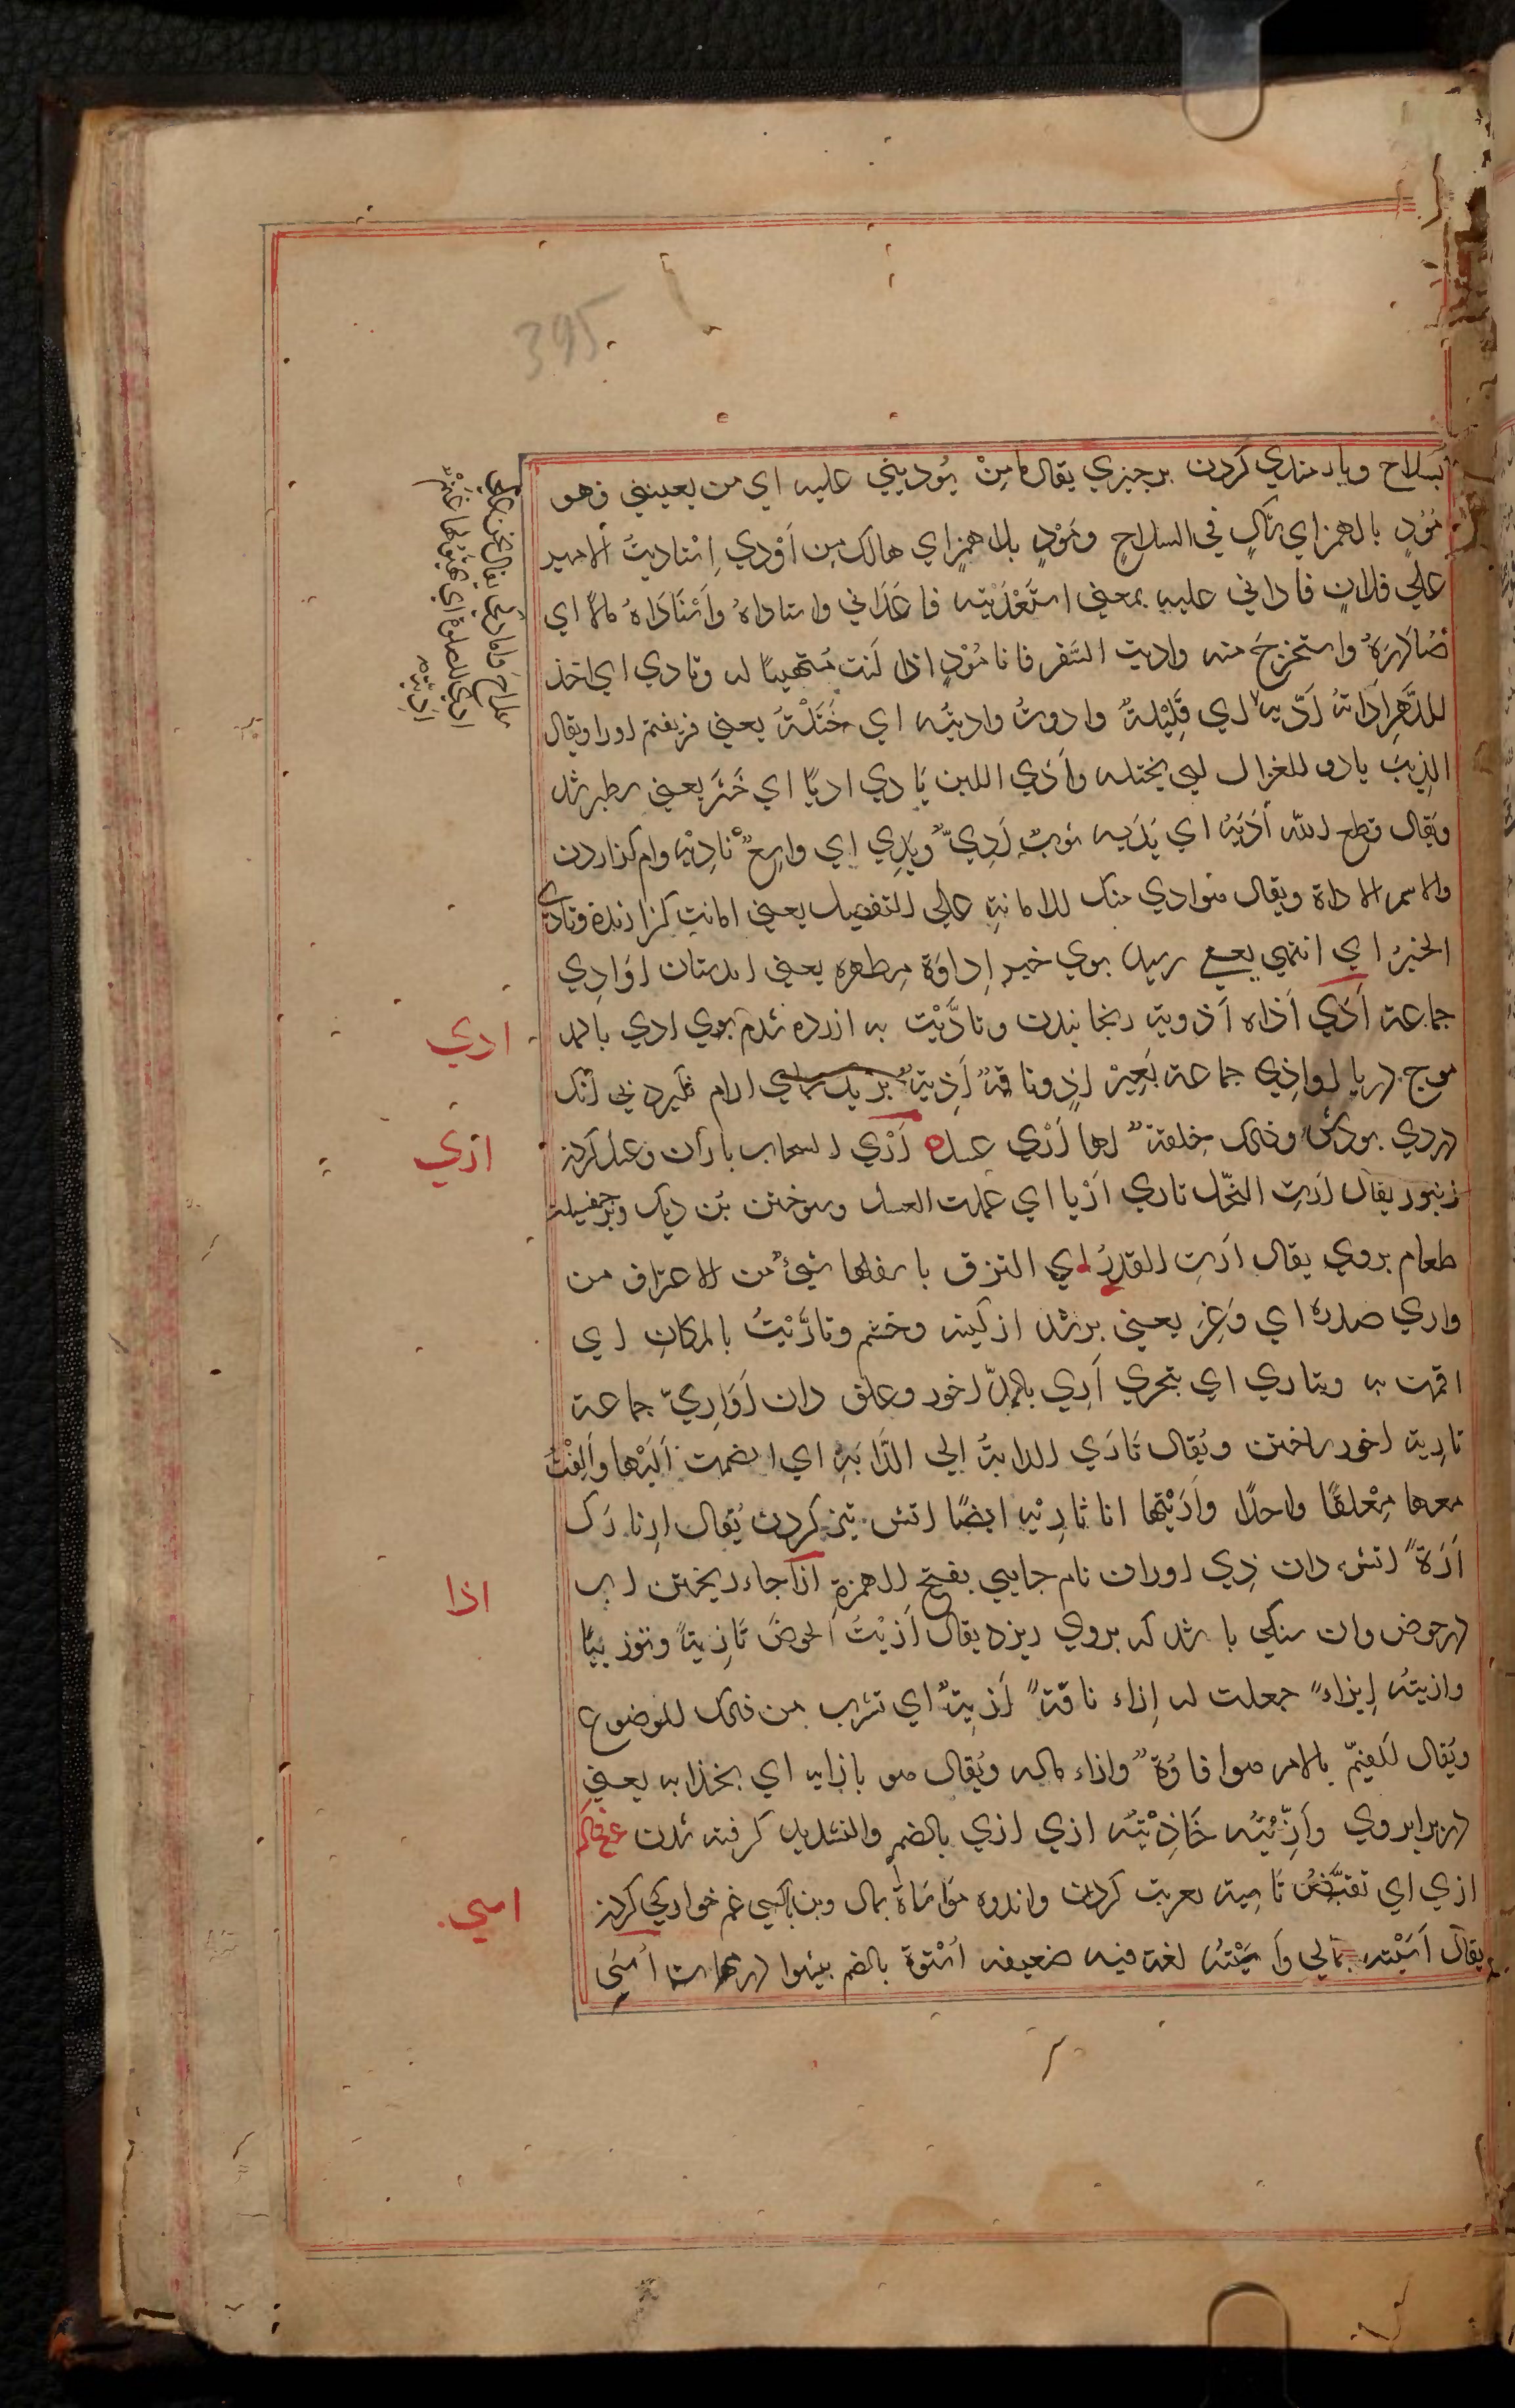 395
بسلاح ويارمندي كردن برچيزي يقال من يُوديني عليه اي من يعينني فهو
مُوْدٍ بالهمز اي شاكٍ في السلاح ومُوْدٍ بلا همز اي هالك من اَوْدي اِستاديتُ الامير
علي فلانٍ فاداني عليه بمعني استَعْدَيْته فاعداني واستاداهُ مالًا اي
صُادَرَهُ واستخرج منه واديت السَّفر فانا مُوْدٍ اذا كنت متهيئًا له وتادي اي اخذ
للدَّهرِ اَداتَهُ اي قَلِيْلةٌ وادوتُ واديتُه اي خَتَلْتُهُ يعني فريفتم اورا ويقال
الذيبُ يادو للغزال اي يختله واَدَي اللبن يَادي اديًا اي خَثَر يعني سطبر شد
ويَقال قطع الله اَدَيْهُ اي يَدَيه ثوبٌ اَدِيٌّ ويَدِي اي واسِعٌ تادِيْه وام كزاردن
والاسم الاداة ويقال هوادي منك للامانةِ علي التفعيل يعني امانت كزارنده وتادي
الخبرُ اي انتهي يعني رسيد بوي خبر اِداوَة مِطهره يعني ابدستان اَوَادِي
جماعة اَذَي اَذاه اَذويته رنجانيدن وتاذَّيْت به ازرده شدم بوي اذي بالمد
موج دريا اواذي جماعة بَعِيْر اَذٍ وناقةٌ اَذِيَةٌ بزيك جاي ارام نگيرد بي آنك
دردي بودش وذلك خِلقةٌ لها اَرْي عسل اَرْي السحاب باران وعسل كردن
زنبور يقال اَرتِ النَّحْل تاري اَرْيا اي عملت العسل وسوختن بُن ديك وبرجفسيدن
طعام بروي يقال اَرَتِ القدرُ اي التزق باسفلها شيءٌ من الاحتراق من
واري صدره اي وَغِرَ يعني برشد از كينه وخشم وتارَّيْتُ بالمكان اي
اقمت به ويتاري اي يتحري اَرِي بالمدّ اخور وعلف دان اَوَارِيّ جماعة
تارية اخور ساختن ويُقال تَارَي الدابةُ الي الدَّابةِ اي انضمت اليها واَلِفتْ
معها مِعْلَفًا واحدًا واَرَيْتها انا تارِيْه ايضًا اتش تيز كردن يُقال ارِ نارَك
اَرَةٌ اتش دان ذِي اوران نام جايي بفتح الهمزة اِزاء جاء ريختن اب
در حوض وان سنكي باشد كه بروي ريزد يقال اَزَيْتُ الحوضَ تَازِيةً وتوزيئًا
وازيته اِيْزاءً جعلت له اِزاء ناقةٌ اَزِيَةٌ اي تشرب من ذلك الموضوع
ويُقال للقيّم بالامر هو ازاؤهٌ وازاء ماله ويُقال هو بازايه اي بحذايه يعني
دربرابر وي واَزَّيْتُه حَاذَيْتُه ازي ازي بالضم والتشديد كرفته شدن
ازي اي تقبَّض تَاسِية تعزيت كردن واندوه مَوَاسَاةٌ بمال وبتن باكسي غم خوارگي كردن
يقال اَسَيْته بمالي وَاسَيْتُه لغة فيه ضعيفه اُسْوَة بالضم پيشوا اُسَي
ادي
ازي
اذا
اسي